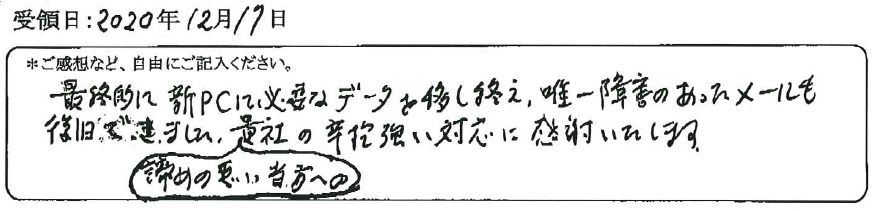 受領日:2020年12月17日
*ご感想など、自由にご記入ください。
最終的に新PCに必要なデータを移し終え、唯一障害のあったメールも
復旧で来ました、貴社の辛抱強い対応に感謝いたします
諦めの悪い当方への